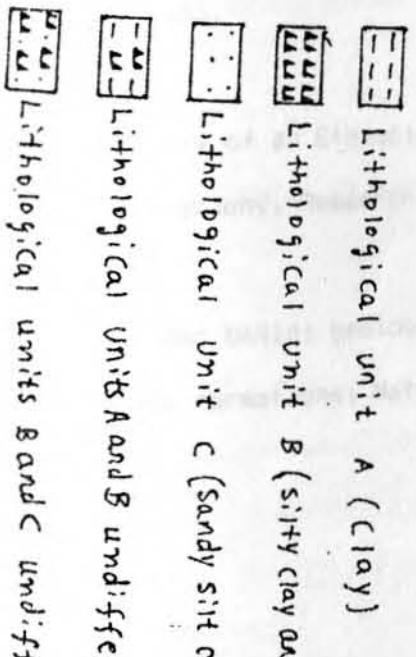 Lithological unit A (clay)
Lithological unit B (silty clay an
Lithological unit C (Sandy silt o
Lithological units A and B undiffe
Lithological units B and C undiff